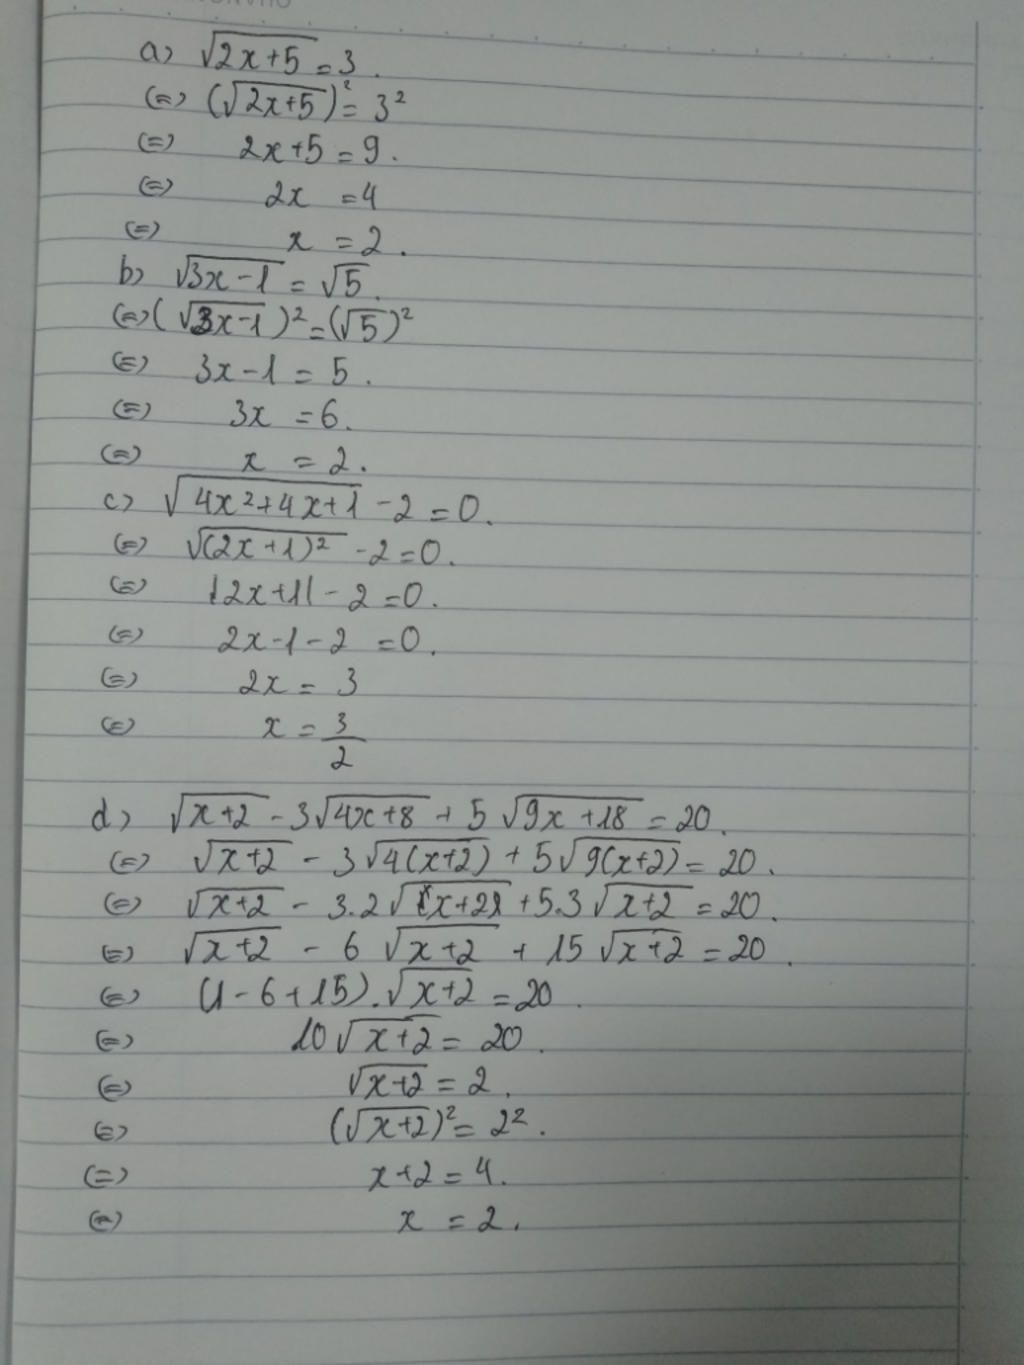 a) √2x+5 = 3.
(=) (√2x+5)² = 3²
(=) 2x+5 = 9.
(=) 2x = 4
(=) x = 2.
b) √3x-1 = √5.
(=) (√3x-1)² = (√5)²
(=) 3x-1 = 5.
(=) 3x = 6.
(=) x = 2.
c) √4x²+4x+1 - 2 = 0.
(=) √(2x+1)² - 2 = 0.
(=) |2x+1| - 2 = 0.
(=) 2x-1-2 = 0.
(=) 2x = 3
(=) x = 3/2
d) √x+2 - 3√4x+8 + 5√9x+18 = 20.
(=) √x+2 - 3√4(x+2) + 5√9(x+2) = 20.
(=) √x+2 - 3.2√(x+2) + 5.3√x+2 = 20.
(=) √x+2 - 6√x+2 + 15√x+2 = 20.
(=) (1-6+15).√x+2 = 20.
(=) 10√x+2 = 20.
(=) √x+2 = 2.
(=) (√x+2)² = 2².
(=) x+2 = 4.
(=) x = 2.